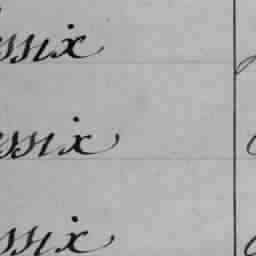 ssix
ssix
ssix